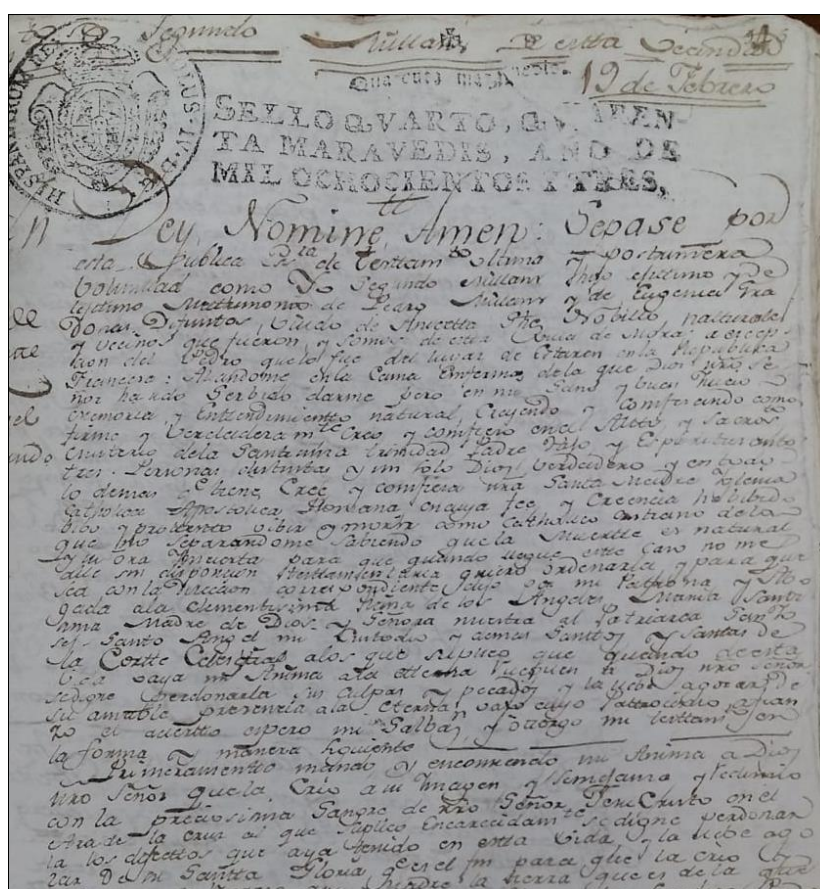 Segundo Millan De esta Vecindad
Quarenta maravedis.
19 de Febrero
HISPANIARUM REX CAROLUS IV D G
SELLO QVARTO, QVAREN
TA MARAVEDIS, AÑO DE
MIL OCHOCIENTOS Y TRES,
Dey Nomine Amen: Sepase por
esta Publica de testtam.to ultima y postrimera
Voluntad como Yo Segundo Millan Lhijo lejitimo y de
lejitimo Mattrimonio de Pedro Millan y de Eugenia Gra
Difuntos, Viudo de Anicetta naturales
y vecinos que fueron, y somos de esta de Mora: a excep
cion del Pedro que lo fue del lugar de en la Republica
Francesa: Allandome en la Cama Enfermo de la que Dios nro Se
ñor ha sido Serbido darme pero en mi Sano y buen Juicio
memoria, y Entendimientto natural Creyendo y comfesando como
firme y Berdaderam.te Creo y comfieso en el Altto y Sacros.to
misterio de la Santisima trinidad Padre Hijo y Espiritu santo
tres Personas distintas y un solo Dios verdadero y en todo
lo demas q.e tiene, Cree y comfiesa nra Santa Madre Iglesia
Catholica Apostolica Romana en cuya fee y Creencia he bibido
bibo y protexto vibir y morir como Catholico Cristiano de la
que bibo Separandome Sabiendo que la Muertte es natural
y su ora Incierta para que quando llegue este Caso no me
alle sin disposicion testtamentaria quiero ordenarla y para que
sea con la direccion correspondiente elijo por mi Patrona y Abo
gada a la clementisima Reina de los Angeles Maria Santi
sima Madre de Dios y Señora nuestra al Patriarca San
Jose Santo Angel mi Custodio y demas Santtos y Santas de
la Cortte Celesttial a los que suplico que quando de esta
vida vaya mi Anima a la etterna a Dios nro Señor
se digne perdonarla sus culpas y pecados y la llebe a gozar de
su amable presencia a la etterna vaxo cuyo pattrocinio afian
zo el acierto espero mi Salba.n y otorgo mi testtam.to en
la forma y manera siguiente
Primeramentte mando y encomiendo mi Anima a Dios
nro Señor que la Crio a su Imagen y Semejanza y redimio
con la preciosisima Sangre de nro Señor Jesu Cristo en el
Ara de la cruz al que Suplico Encarecidam.te se digne perdonar
la los defectos que aya tenido en esta vida y la llebe a go
zar De su Santta Gloria q.e es el fin para que la crio
la tierra que es de la que